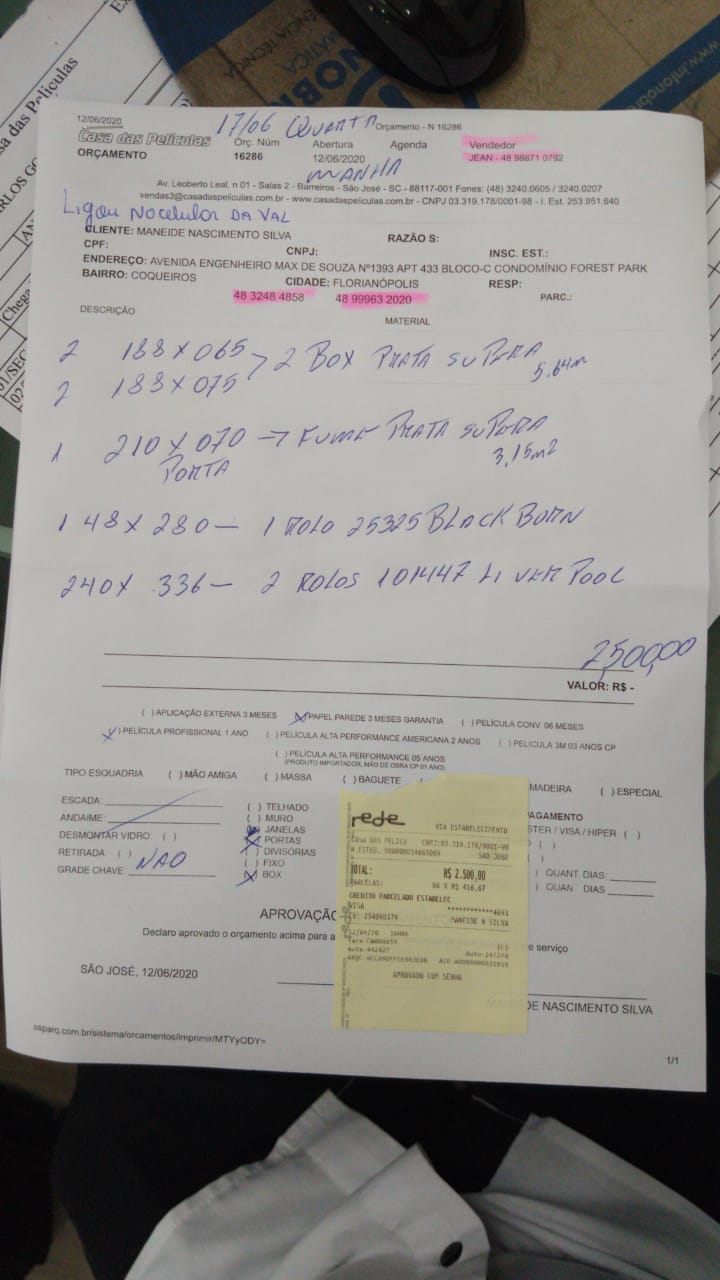 12/06/2020
17/06 QUARTA
Orçamento - N 16286
Casa das Películas
ORÇAMENTO
Orç. Núm
16286
Abertura
12/06/2020
Agenda
MANHA
Vendedor
JEAN - 48 98871 0792
Av. Leoberto Leal, n 01 - Salas 2 - Barreiros - São José - SC - 88117-001 Fones: (48) 3240.0605 / 3240.0207
vendas3@casadaspeliculas.com.br - www.casadaspeliculas.com.br - CNPJ 03.319.178/0001-98 - I. Est. 253.951.640
Ligou No celular DA VAL
CLIENTE: MANEIDE NASCIMENTO SILVA RAZÃO S:
CPF: CNPJ: INSC. EST.:
ENDEREÇO: AVENIDA ENGENHEIRO MAX DE SOUZA Nº1393 APT 433 BLOCO-C CONDOMÍNIO FOREST PARK
BAIRRO: COQUEIROS CIDADE: FLORIANÓPOLIS RESP:
48 3248 4858 48 99963 2020 PARC.:
DESCRIÇÃO MATERIAL
2 188 X 065 > 2 BOX PRATA SUPERA
2 188 X 075 5.64m
1 210 X 070 → FUME PRATA SUPERA
PORTA 3,15m2
1 48 X 280 – 1 ROLO 25325 BLACK BURN
240 X 336 – 2 ROLOS 101447 LIVERPOOL
2,500,00
VALOR: R$ -
( ) APLICAÇÃO EXTERNA 3 MESES (X) PAPEL PAREDE 3 MESES GARANTIA ( ) PELÍCULA CONV. 06 MESES
(X) PELÍCULA PROFISSIONAL 1 ANO ( ) PELÍCULA ALTA PERFORMANCE AMERICANA 2 ANOS ( ) PELÍCULA 3M 03 ANOS CP
( ) PELÍCULA ALTA PERFORMANCE 05 ANOS
(PRODUTO IMPORTADOR, MÃO DE OBRA CP 01 ANO)
TIPO ESQUADRIA ( ) MÃO AMIGA ( ) MASSA ( ) BAGUETE MADEIRA ( ) ESPECIAL
ESCADA:
ANDAIME:
DESMONTAR VIDRO: ( )
RETIRADA: ( ) NAO
GRADE CHAVE:
( ) TELHADO
( ) MURO
(X) JANELAS
(X) PORTAS
( ) DIVISÓRIAS
( ) FIXO
(X) BOX
AGAMENTO
STER / VISA / HIPER ( )
) ( )
) QUANT. DIAS:
) QUAN DIAS
rede
VIA ESTABELECIMENTO
CASA DAS PELICU CNPJ:03.319.178/0001-98
SAO JOSE
TOTAL: R$ 2.500,00
PARCELAS: 06 X R$ 416,67
CREDITO PARCELADO ESTABELEC
VISA ************4093
CV: 254090379 MANEIDE N SILVA
12/06/20
Auto:442427 Auto:247270
APROVADO COM SENHA
APROVAÇÃO
Declaro aprovado o orçamento acima para a
e serviço
SÃO JOSÉ, 12/06/2020
DE NASCIMENTO SILVA
osparq.com.br/sistema/orcamentos/imprimir/MTYyODY=
1/1